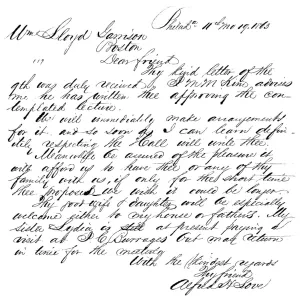 Philada 11th mo 19. 1863
Wm Lloyd Garrison
Boston
Dear friend
Thy kind letter of the
9th was duly received by J M McKim, advises
me he has written thee approving the con-
templated lecture.
We will immediately make arrangements
for it, and so soon as I can learn defin-
itely respecting the Hall will write thee.
Meanwhile be assured of the pleasure it
will afford us to have thee or any of thy
family with us, if only for the short time
thee proposed. We wish it could be longer.
Thy good wife & daughter will be especially
welcome either to my house or father's. My
sister Lydia is at present paying a
visit at J. E. Burrages but may return
in time for the meeting
With the kindest regards
Thy friend
Alfred H. Love